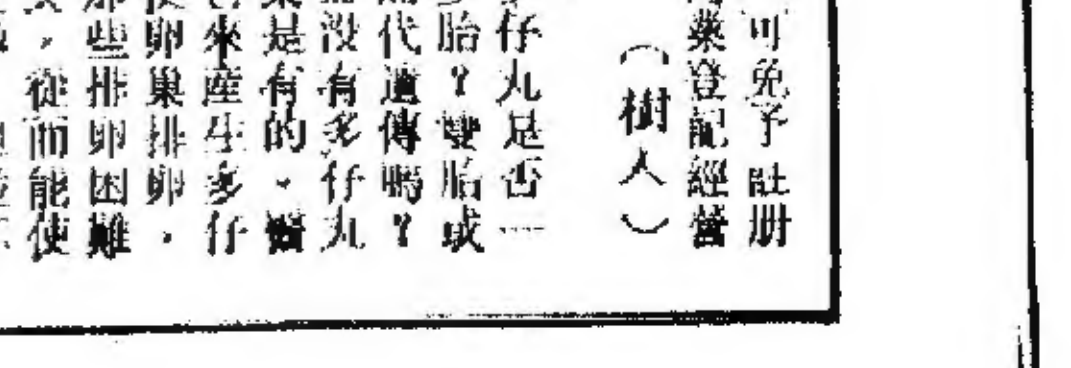 可免予註册
藥登記經營
（樹人）
仔丸是否一
胎？雙胎或
代遺傳嗎？
没有多仔丸
是有的。醫
來產生多仔
卵巢排卵，
些排卵困難
，從而能使